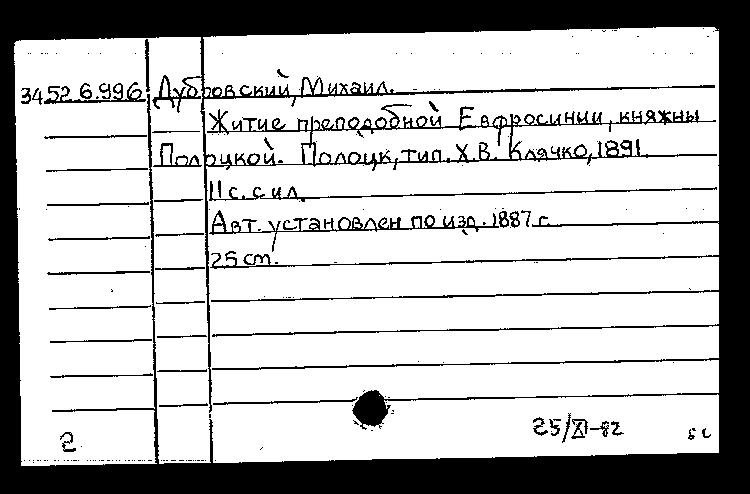 34.52.6.996 Дубровский, Михаил.
Житие преподобной Евфросинии, княжны
Полоцкой. Полоцк, тип. Х.В. Клячко, 1891.
11 с. с ил.
Авт. установлен по изд. 1887 г.
25 см.
2
25/XI-82